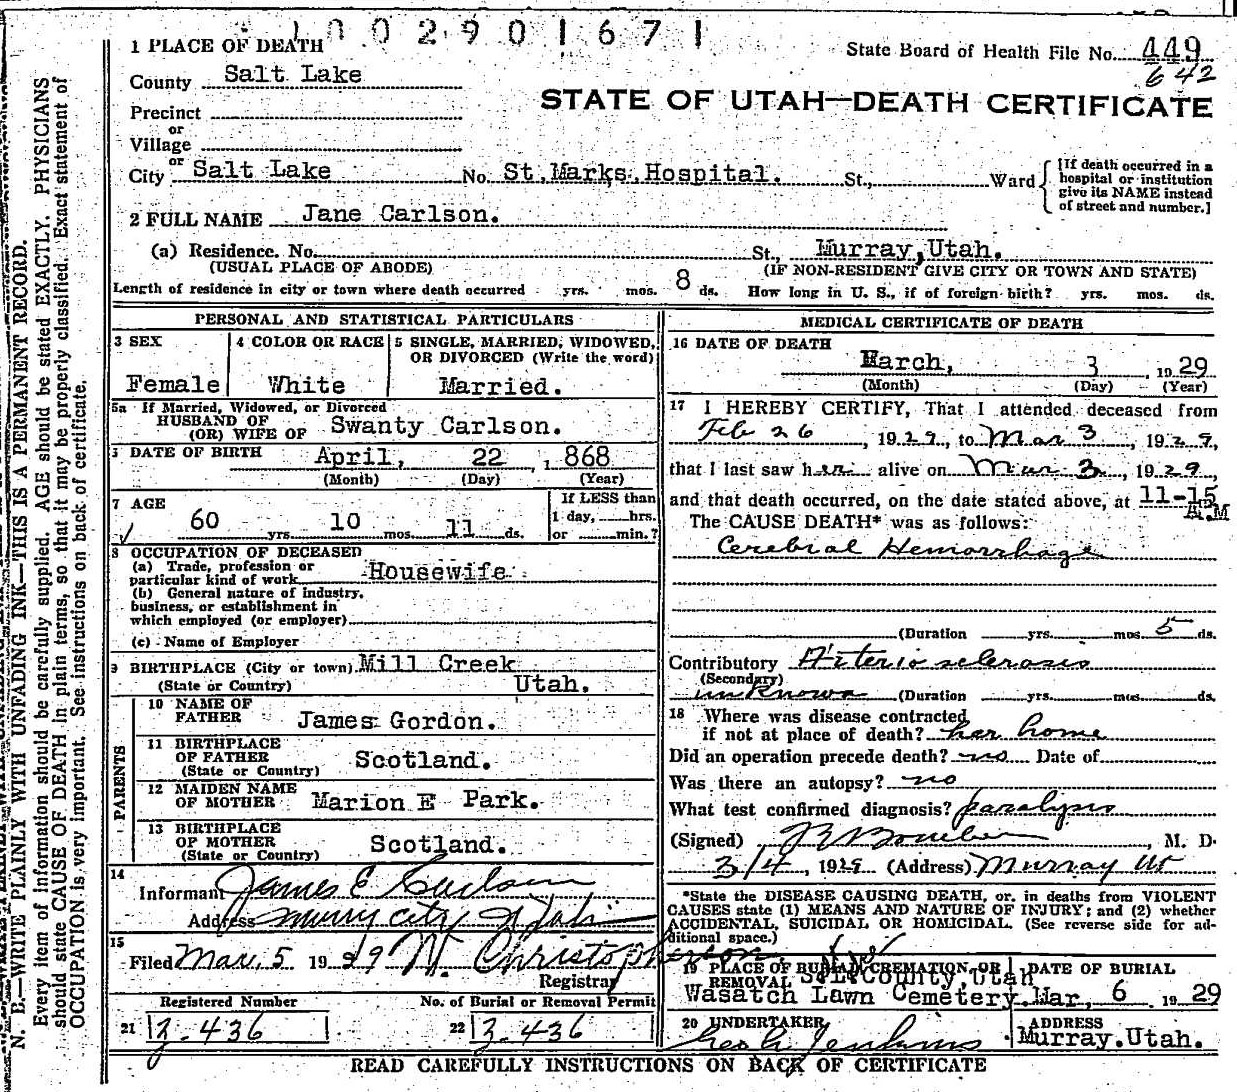 1002901671
1 PLACE OF DEATH
State Board of Health File No. 449
County Salt Lake
642
STATE OF UTAH—DEATH CERTIFICATE
Precinct
or
Village
or
City Salt Lake No. St. Marks Hospital. St., Ward
[If death occurred in a
hospital or institution
give its NAME instead
of street and number.]
2 FULL NAME Jane Carlson.
(a) Residence. No. St., Murray, Utah.
(USUAL PLACE OF ABODE) (IF NON-RESIDENT GIVE CITY OR TOWN AND STATE)
Length of residence in city or town where death occurred yrs. mos. 8 ds. How long in U. S., if of foreign birth? yrs. mos. ds.
PERSONAL AND STATISTICAL PARTICULARS
3 SEX
Female
4 COLOR OR RACE
White
5 SINGLE, MARRIED, WIDOWED,
OR DIVORCED (Write the word)
Married.
5a If Married, Widowed, or Divorced
HUSBAND OF
(OR) WIFE OF Swanty Carlson.
DATE OF BIRTH April, 22, 868
(Month) (Day) (Year)
7 AGE
60 yrs. 10 mos. 11 ds.
If LESS than
1 day, hrs.
or min.?
8 OCCUPATION OF DECEASED
(a) Trade, profession or
particular kind of work Housewife
(b) General nature of industry,
business, or establishment in
which employed (or employer)
(c) Name of Employer
9 BIRTHPLACE (City or town) Mill Creek
(State or Country) Utah.
PARENTS
10 NAME OF
FATHER James Gordon.
11 BIRTHPLACE
OF FATHER Scotland.
(State or Country)
12 MAIDEN NAME
OF MOTHER Marion E Park.
13 BIRTHPLACE
OF MOTHER Scotland.
(State or Country)
14
Informant James E Carlson
Address Murry City Utah
15
Filed Mar. 5 1929 W. Christopherson.
Registrar
Registered Number No. of Burial or Removal Permit
21 Z-436 22 Z-436
MEDICAL CERTIFICATE OF DEATH
16 DATE OF DEATH
March, 3, 1929
(Month) (Day) (Year)
17 I HEREBY CERTIFY, That I attended deceased from
Feb 26, 1929, to Mar 3, 1929,
that I last saw her alive on Mar 3, 1929,
and that death occurred, on the date stated above, at 11-15
A.M
The CAUSE DEATH* was as follows:
Cerebral Hemorrhage
(Duration yrs. mos. 5 ds.
Contributory Arteriosclerosis
(Secondary)
unknown (Duration yrs. mos. ds.
18 Where was disease contracted
if not at place of death? her home
Did an operation precede death? no Date of
Was there an autopsy? no
What test confirmed diagnosis? paralysis
(Signed) , M. D.
3/4, 1929 (Address) Murray Ut
*State the DISEASE CAUSING DEATH, or, in deaths from VIOLENT
CAUSES state (1) MEANS AND NATURE OF INJURY; and (2) whether
ACCIDENTAL, SUICIDAL OR HOMICIDAL. (See reverse side for ad-
ditional space.)
19 PLACE OF BURIAL, CREMATION, OR
REMOVAL S. L. County, Utah
Wasatch Lawn Cemetery.
DATE OF BURIAL
Mar, 6 1929
20 UNDERTAKER
Geo G. Jenkins
ADDRESS
Murray. Utah.
READ CAREFULLY INSTRUCTIONS ON BACK OF CERTIFICATE
N. B.—WRITE PLAINLY WITH UNFADING INK—THIS IS A PERMANENT RECORD.
Every item of information should be carefully supplied. AGE should be stated EXACTLY. PHYSICIANS
should state CAUSE OF DEATH in plain terms, so that it may be properly classified. Exact statement of
OCCUPATION is very important. See instructions on back of certificate.